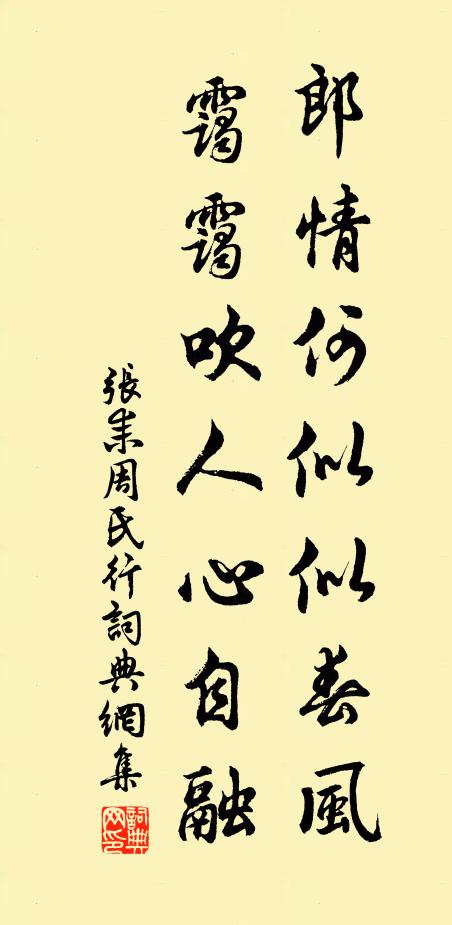 郎情何似似春風
靄靄吹人心自融
張耒周民行詞典網集
詞典網印